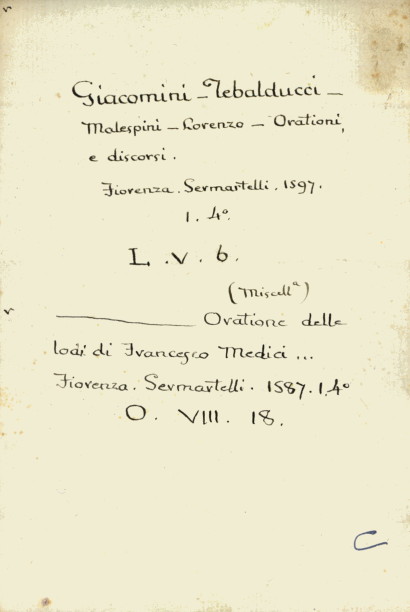 Giacomini - Tebalducci -
Malespini - Lorenzo - Orationi,
e discorsi.
Fiorenza. Sermartelli. 1597.
1. 4º.
L. V. 6.
(Miscellª)
______ Oratione delle
lodi di Francesco Medici ...
Fiorenza. Sermartelli. 1587. 1. 4º
O. VIII. 18.
C